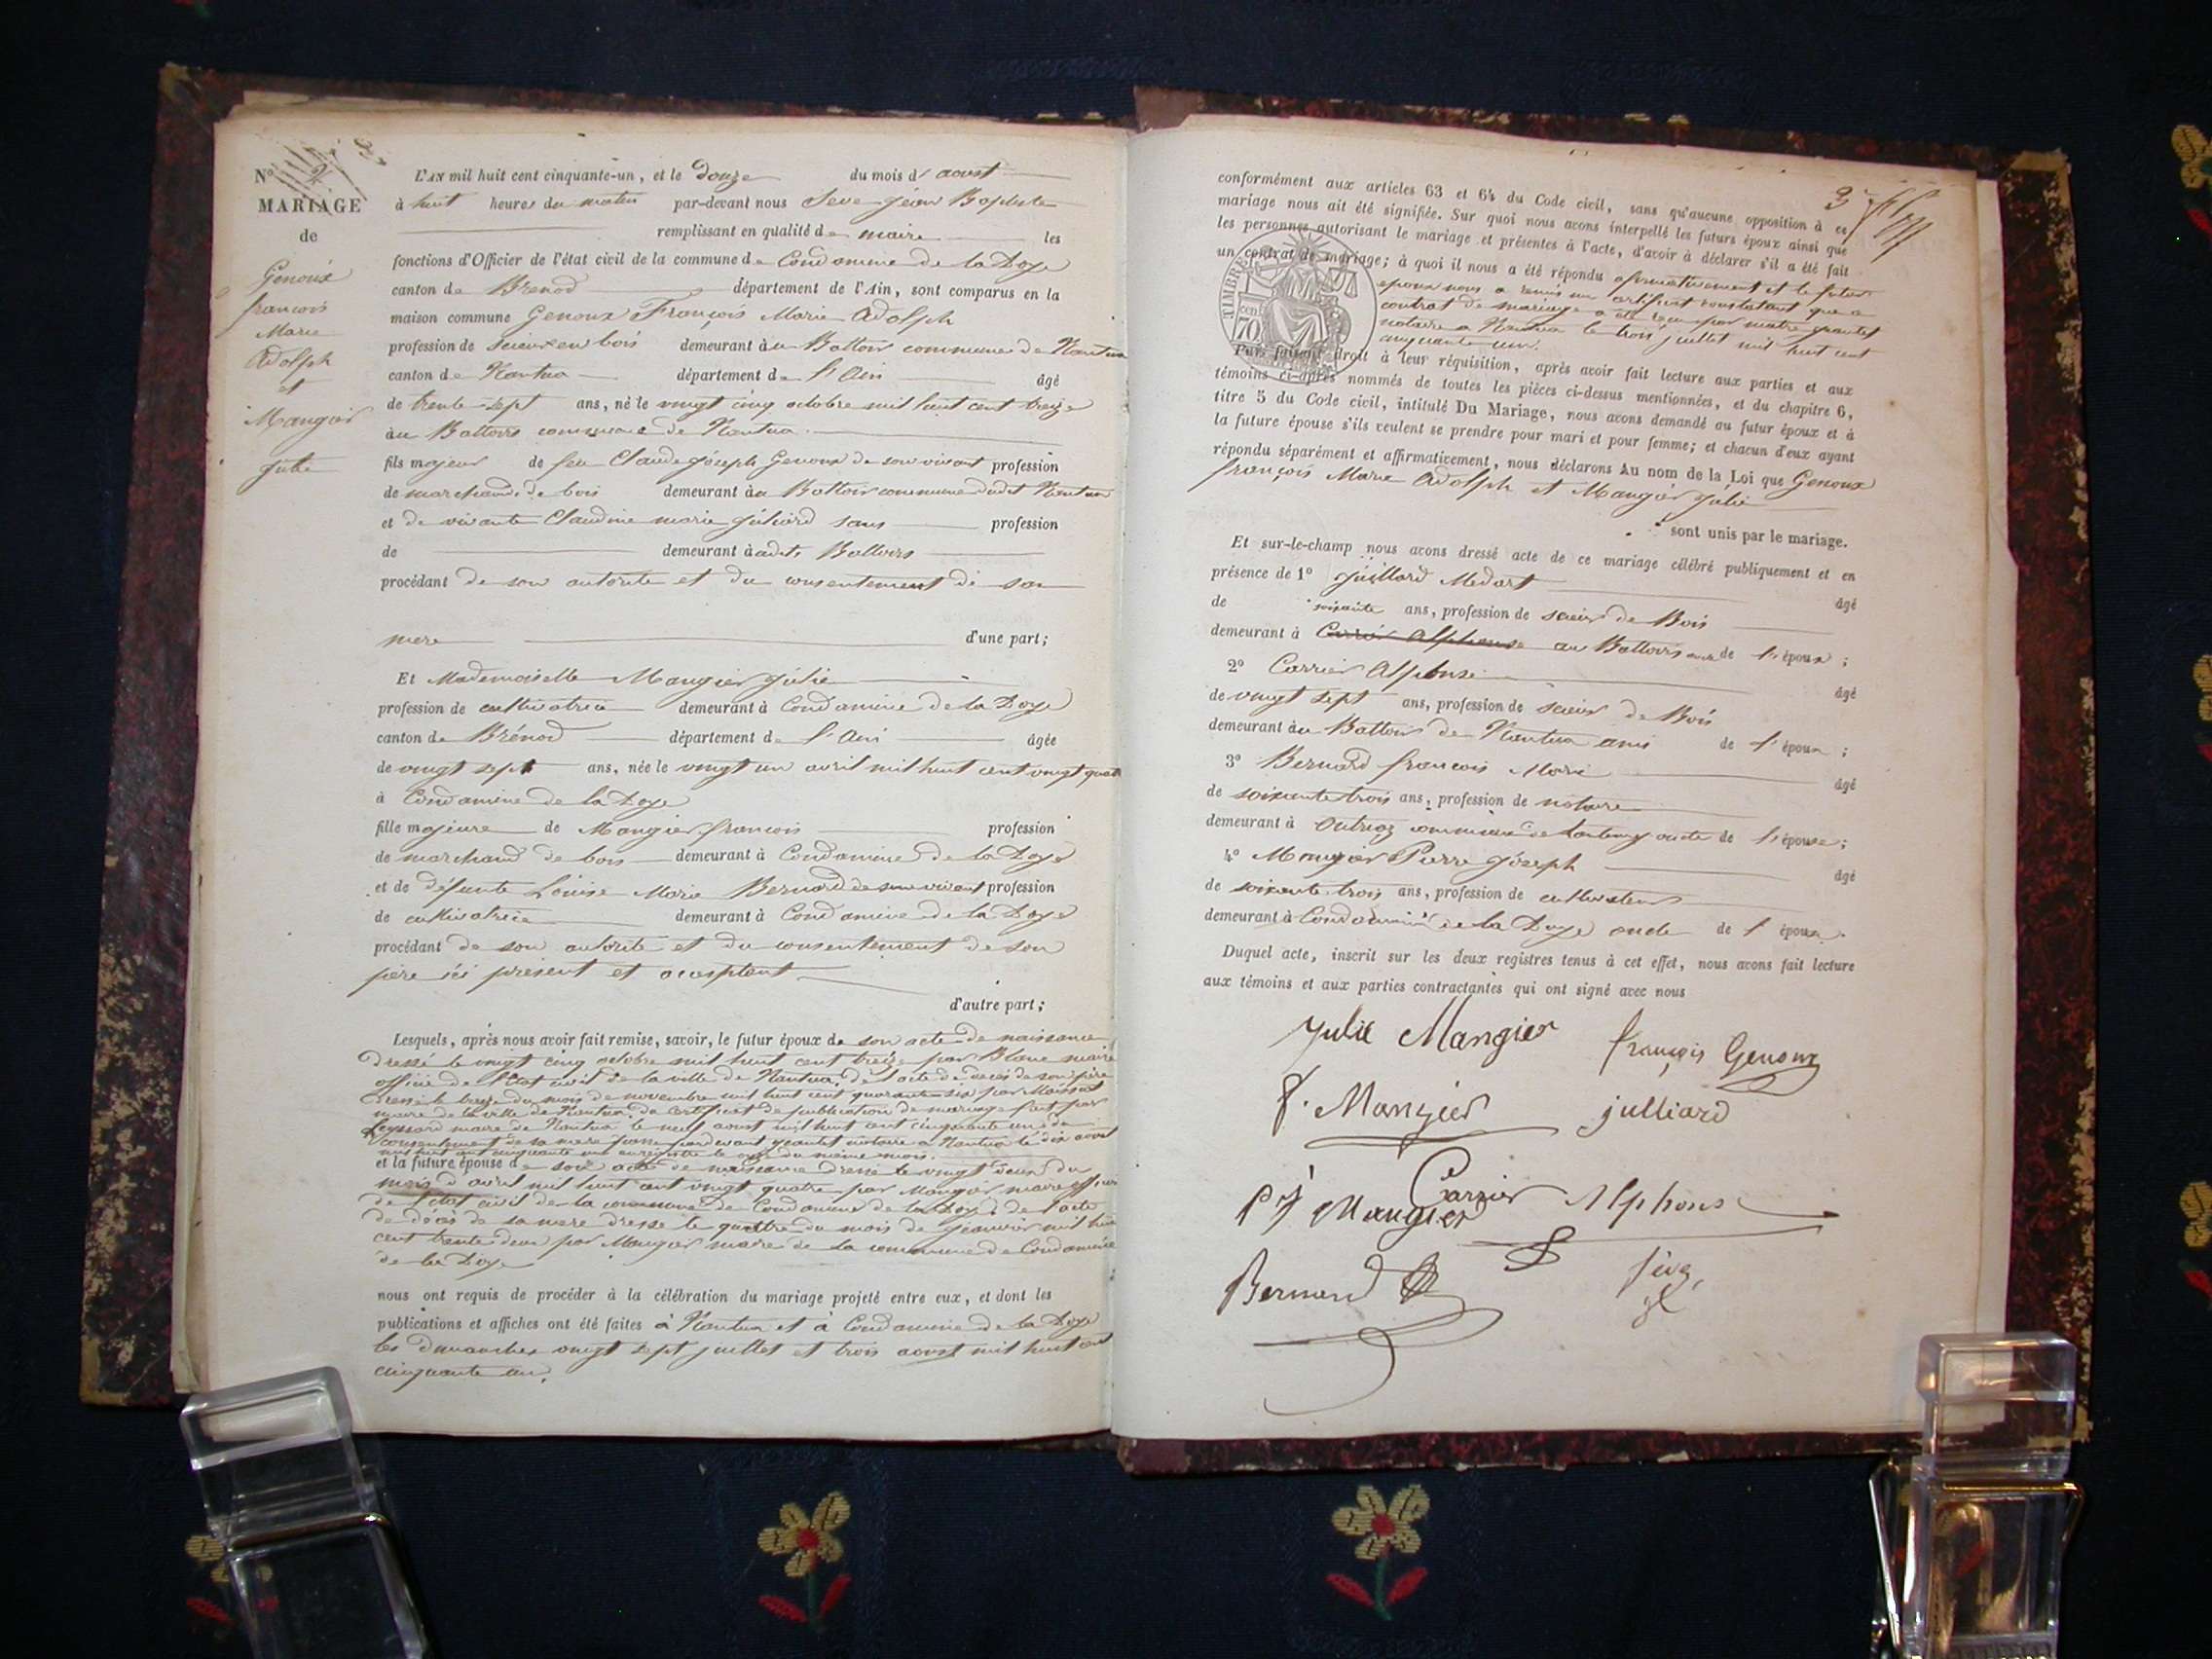 N° 2
MARIAGE
de
Genoux
françois
Marie
Adolph
et
Mangier
Julie
L'AN mil huit cent cinquante-un, et le douze du mois d'aoust
à huit heures du matin par-devant nous Seve Jean Baptiste
remplissant en qualité de maire les
fonctions d'Officier de l'état civil de la commune de Condamine de la Doye
canton de Brenod département de l'Ain, sont comparus en la
maison commune Genoux François Marie Adolph
profession de scieur en bois demeurant au Battoir commune de Nantua
canton de Nantua département de l'Ain âgé
de trente-sept ans, né le vingt cinq octobre mil huit cent treize
au Battoirs commune de Nantua
fils majeur de feu Claude Joseph Genoux de son vivant profession
de marchand de bois demeurant au Battoir commune dudit Nantua
et de vivante Claudine marie Juliard sans profession
de demeurant à audits Battoirs
procédant de son autorité et du consentement de sa
mere d'une part;
Et Mademoiselle Mangier Julie
profession de cultivatrice demeurant à Condamine de la Doye
canton de Brénod département de l'Ain âgée
de vingt sept ans, née le vingt un avril mil huit cent vingt quatre
à Condamine de la Doye
fille majeure de Mangier françois profession
de marchand de bois demeurant à Condamine de la Doye
et de défunte Louise Marie Bernard de son vivant profession
de cultivatrice demeurant à Condamine de la Doye
procédant de son autorité et du consentement de son
père ici présent et acceptant
d'autre part;
Lesquels, après nous avoir fait remise, savoir, le futur époux de son acte de naissance
dressé le vingt cinq octobre mil huit cent treize par Blanc maire
officier de l'état civil de la ville de Nantua, de l'acte de décès de son père
dressé le treize du mois de novembre mil huit cent quarante six par
maire de la ville de Nantua, du certificat de publication de mariage fait par
maire de Nantua le neuf aoust mil huit cent cinquante un de
consentement de sa mere passé pardevant notaire a Nantua le dix aoust
mil huit cent cinquante un enregistré le onze du même mois.
et la future épouse de son acte de naissance dressé le vingt deux du
mois d'avril mil huit cent vingt quatre par Mangier maire officier
de l'état civil de la commune de Condamine de la Doye, de l'acte
de décès de sa mere dressé le quattre du mois de Jeanvier mil huit
cent trente deux par Mangier maire de la commune de Condamine
de la Doye
nous ont requis de procéder à la célébration du mariage projeté entre eux, et dont les
publications et affiches ont été faites à Nantua et à Condamine de la Doye
les dimanches vingt sept juillet et trois aoust mil huit cent
cinquante un.
3
conformément aux articles 63 et 64 du Code civil, sans qu'aucune opposition à ce
mariage nous ait été signifiée. Sur quoi nous avons interpellé les futurs époux ainsi que
les personnes autorisant le mariage et présentes à l'acte, d'avoir à déclarer s'il a été fait
un contrat de mariage; à quoi il nous a été répondu afirmativement et le futur
epoux nous a remis un certificat constatant que le
contrat de mariage a été reçu par maitre
notaire a Nantua le trois juillet mil huit cent
cinquante un.
TIMBRE
70 cent
Puis faisant droit à leur réquisition, après avoir fait lecture aux parties et aux
témoins ci-après nommés de toutes les pièces ci-dessus mentionnées, et du chapitre 6,
titre 5 du Code civil, intitulé Du Mariage, nous avons demandé au futur époux et à
la future épouse s'ils veulent se prendre pour mari et pour femme; et chacun d'eux ayant
répondu séparément et affirmativement, nous déclarons Au nom de la Loi que Genoux
françois Marie Adolph et Mangier Julie
sont unis par le mariage.
Et sur-le-champ nous avons dressé acte de ce mariage célébré publiquement et en
présence de 1° Juillard Medart âgé
de soixante ans, profession de scieur de Bois
demeurant à Carrier Alphonse au Battoirs oncle de l'époux;
2° Carrier Alphonse âgé
de vingt sept ans, profession de scieur de Bois
demeurant au Battoir de Nantua ami de l'époux;
3° Bernard françois Marie âgé
de soixante trois ans, profession de notaire
demeurant à Outriaz commune de Lantenay oncle de l'épouse;
4° Mangier Pierre Joseph âgé
de soixante trois ans, profession de cultivateur
demeurant à Condamine de la Doye oncle de l'épouse.
Duquel acte, inscrit sur les deux registres tenus à cet effet, nous avons fait lecture
aux témoins et aux parties contractantes qui ont signé avec nous
Julie Mangier
françois Genoux
f. Mangier
julliard
Carrier Alphonse
P J Mangier
Bernard
Seve